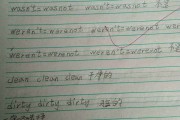 wasn't=wasnot wasn't=wasnot 不是
weren't=werenot weren't=werenot
weren't=werenot weren't=werenot 不是
clean clean clean 干净的
dirty dirty dirty